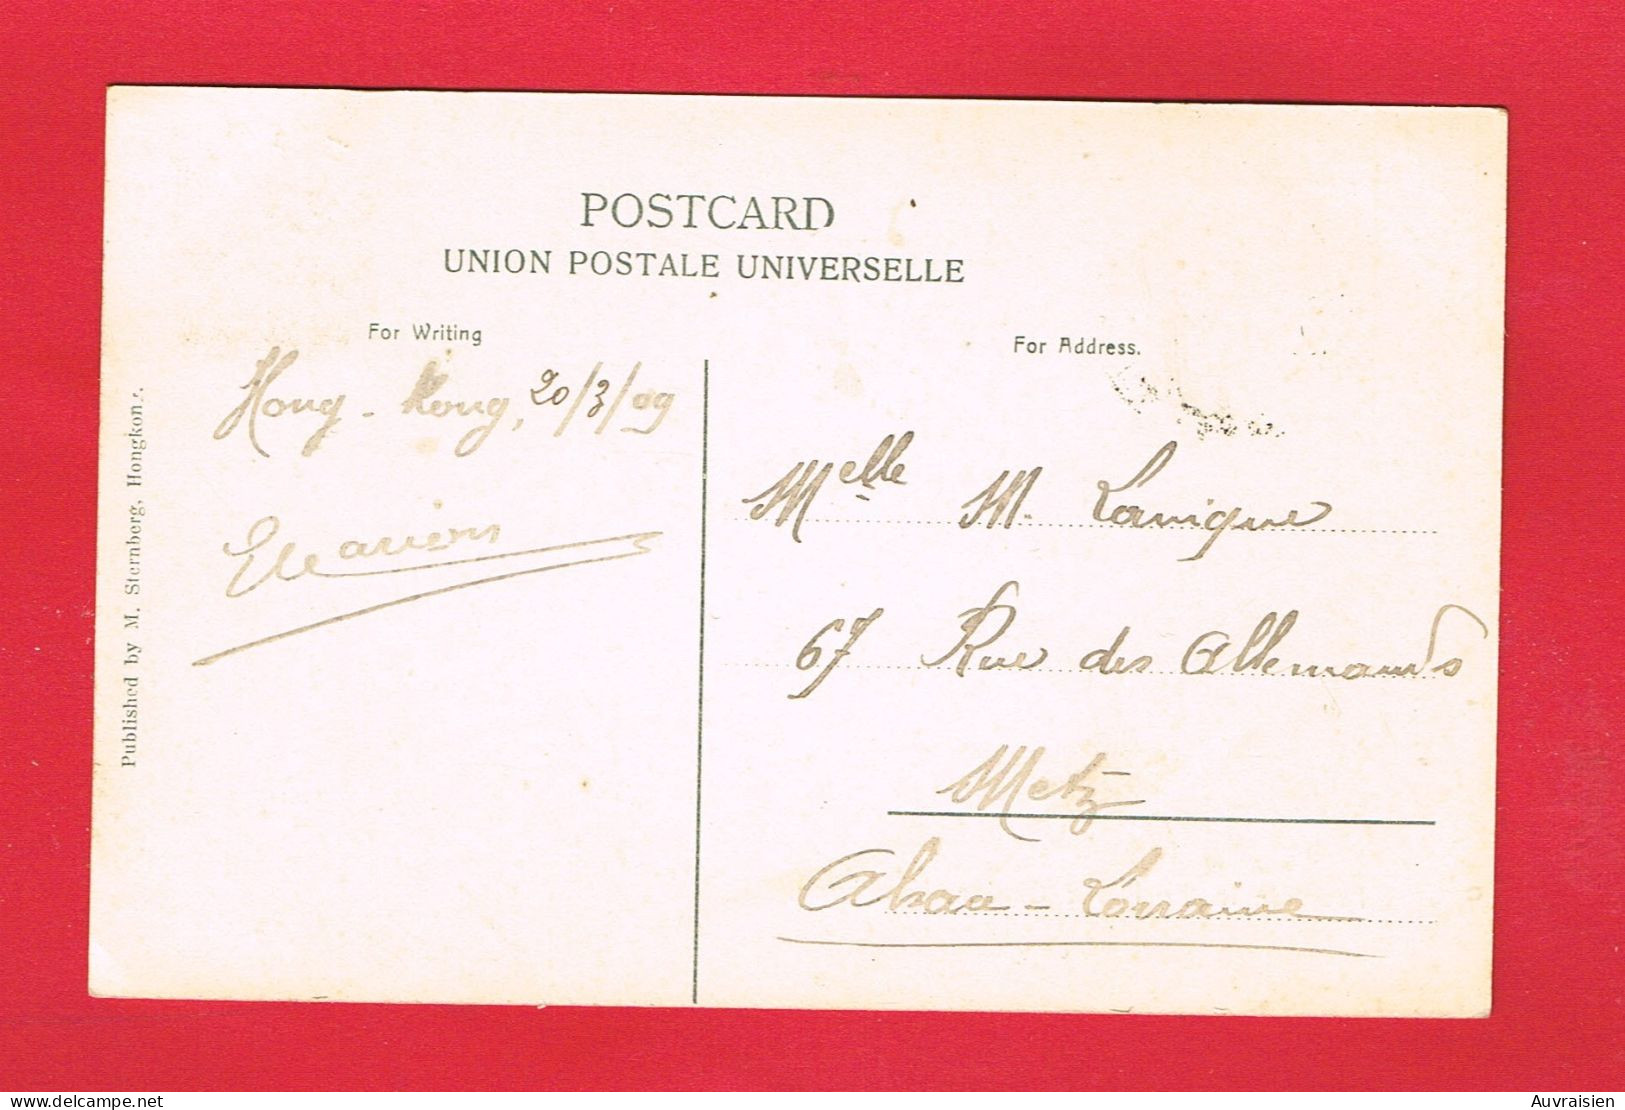 POSTCARD
UNION POSTALE UNIVERSELLE
For Writing
For Address.
Hong-Kong, 20/3/09
Published by M. Sternberg, Hongkong.
Melle M. Lanique
67 Rue des Allemands
Metz
Alsace-Lorraine
delcampe.net
Auvraisien